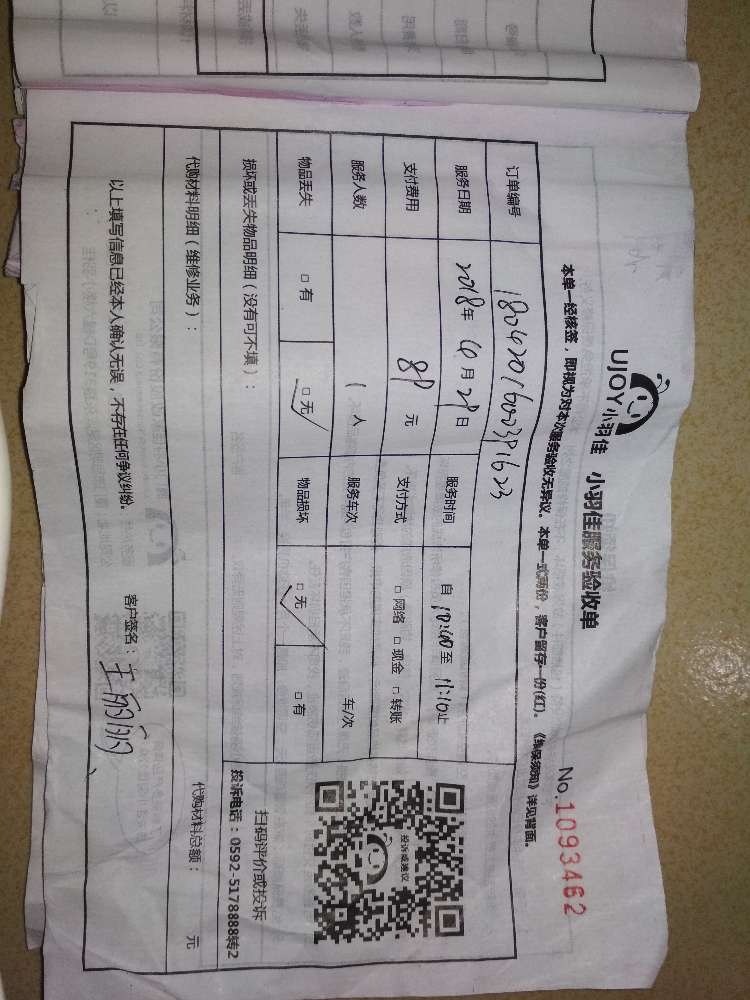 UJOY小羽佳
小羽佳服务验收单
No.1093462
本单一经核签，即视为对本次服务验收无异议。本单一式两份，客户留存一份(红)。《维保须知》详见背面。
订单编号 18042016002381623
服务日期 2018年 4月28日 服务时间 自 10:00至 11:10止
支付费用 89 元 支付方式 □ 网络 □ 现金 □ 转账
服务人数 1 人 服务车次 车/次
物品丢失 □ 有 □ 无 物品损坏 □ 无 □ 有
投诉或建议
扫码评价或投诉
投诉电话：0592-5178888转2
损坏或丢失物品明细（没有可不填）：
代购材料明细（维修业务）： 代购材料总额： 元
以上填写信息已经本人确认无误，不存在任何争议纠纷。 客户签名：